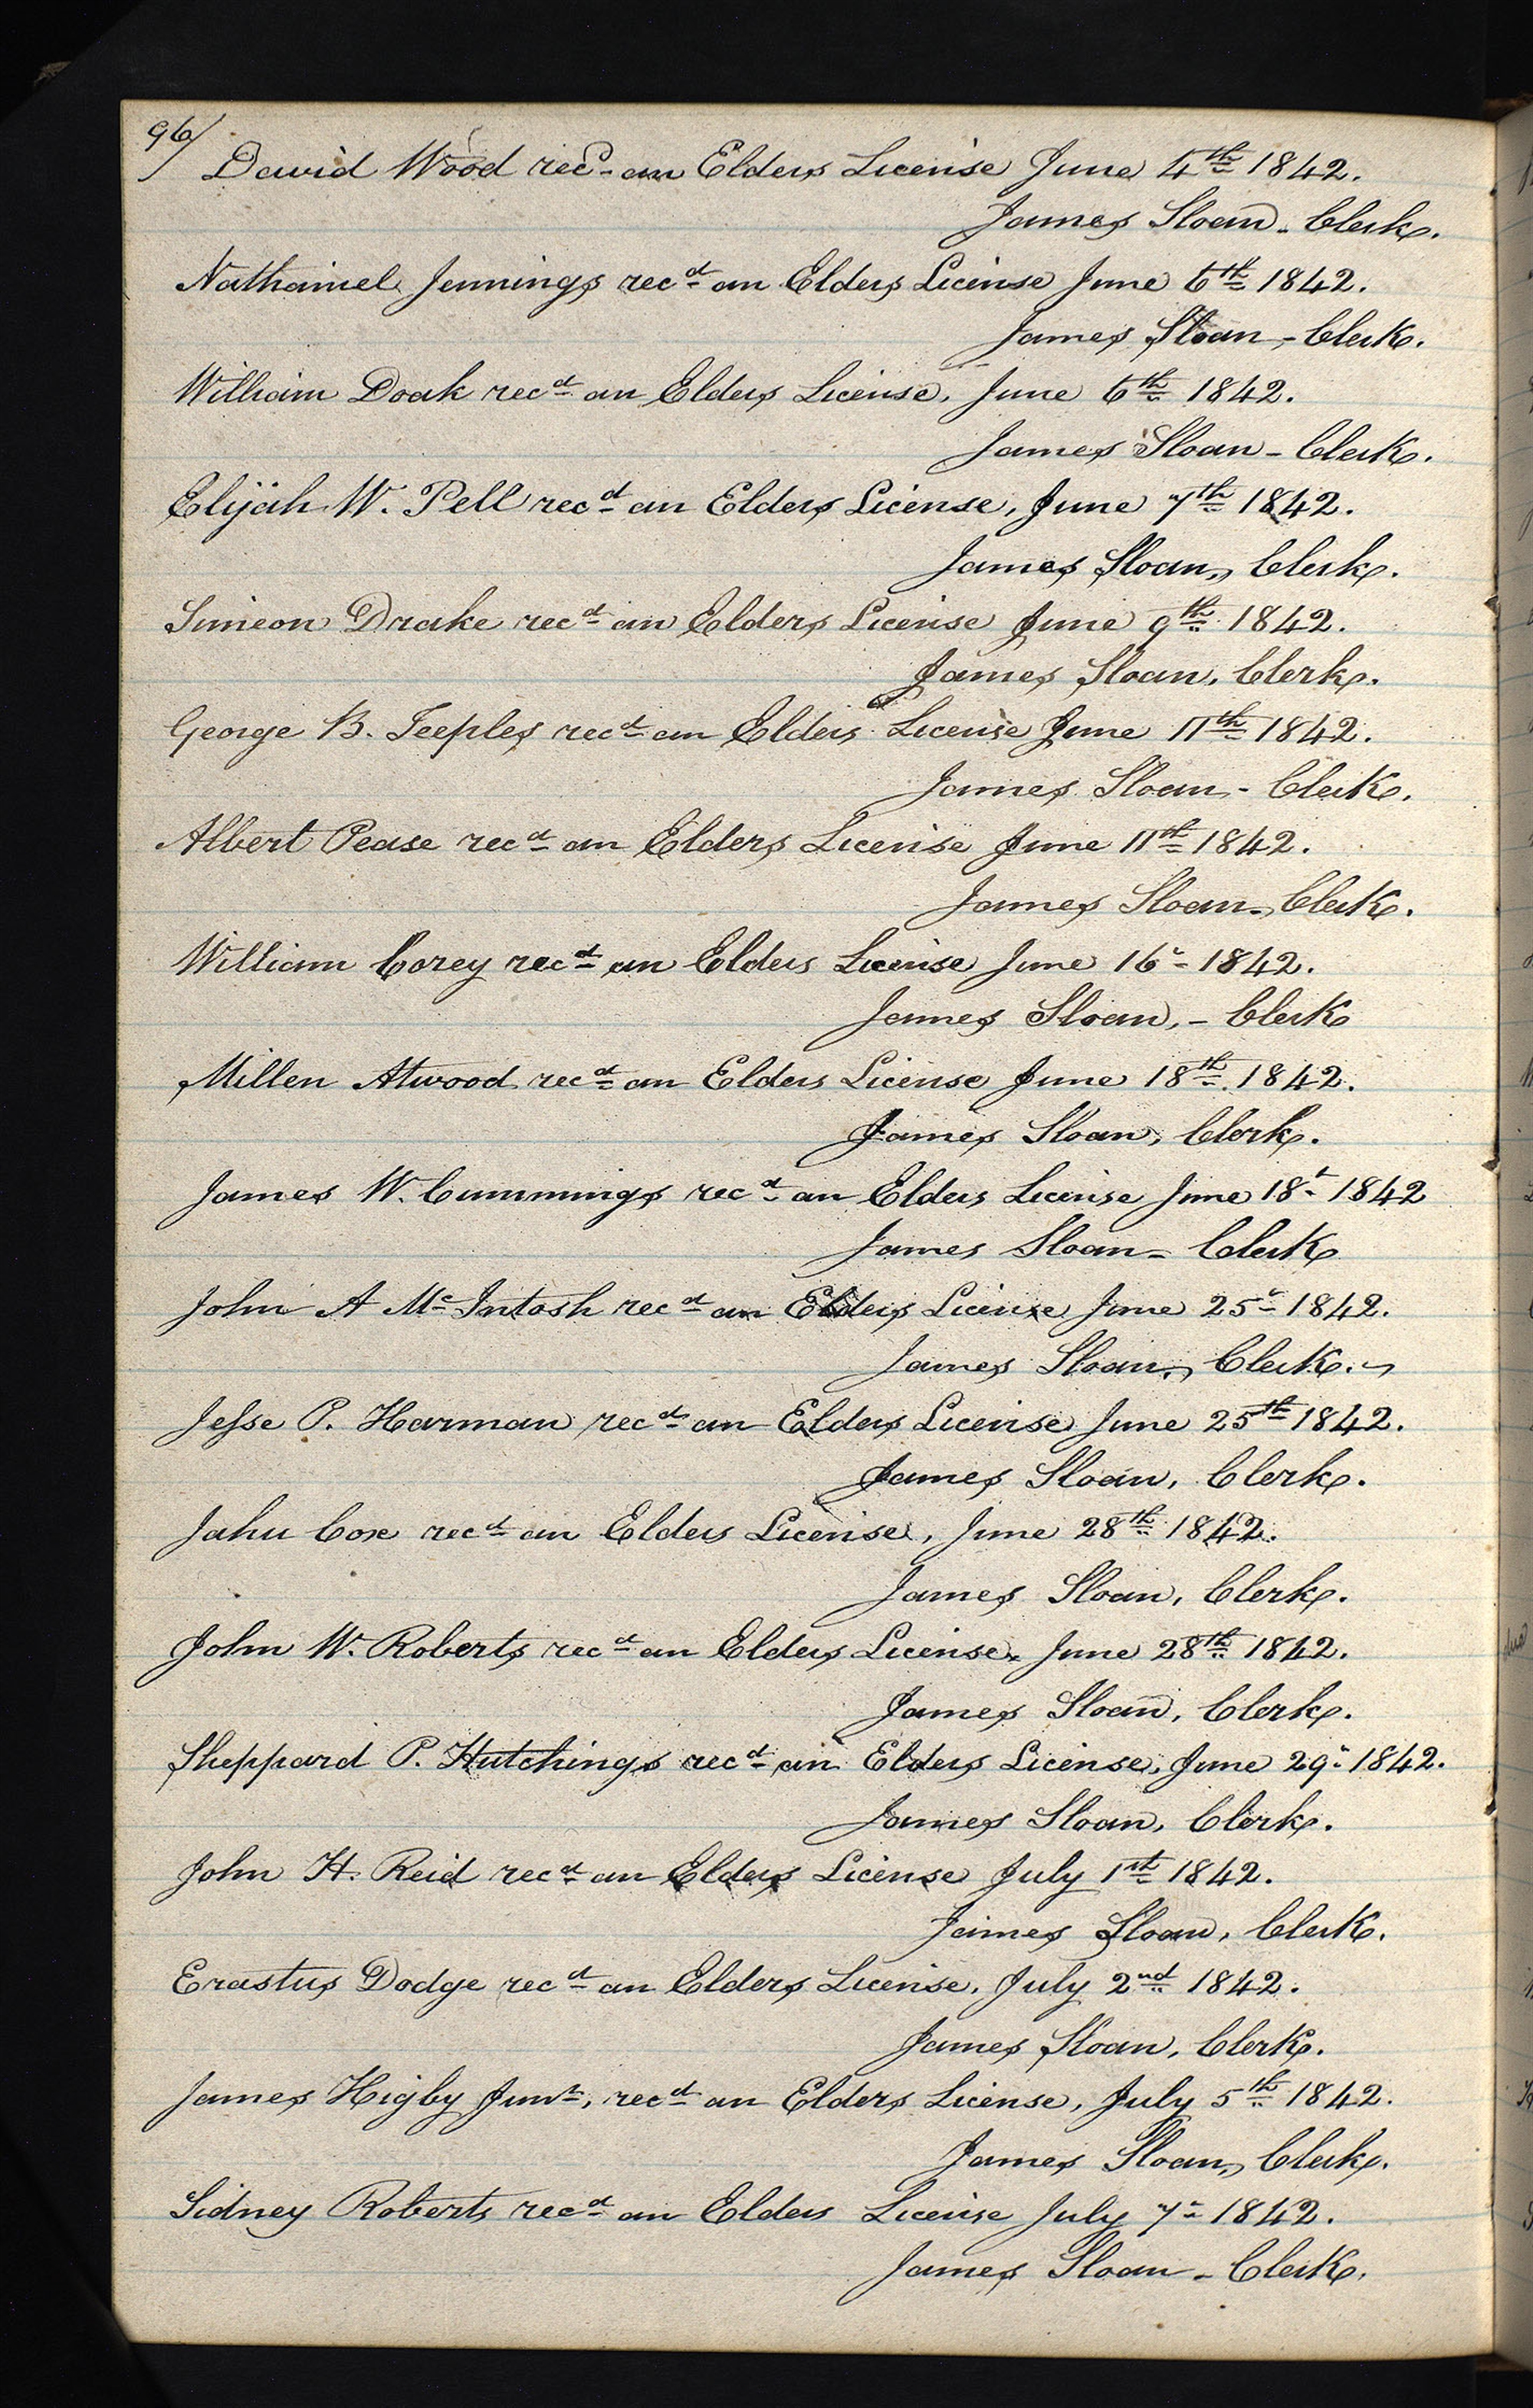 96/
David Wood recd. an Elders License June 4th 1842.
James Sloan - Clerk.
Nathaniel Jennings recd an Elders License June 6th 1842.
James Sloan, - Clerk.
William Doak recd an Elders License, June 6th 1842.
James Sloan - Clerk.
Elijah W. Pell recd an Elders License, June 7th 1842.
James Sloan, Clerk.
Simeon Drake recd an Elders License June 9th 1842.
James Sloan, Clerk.
George B. Teeples recd an Elders License June 11th 1842.
James Sloan - Clerk.
Albert Pease recd an Elders License June 11th 1842.
James Sloan - Clerk.
William Corey recd an Elders License June 16" 1842.
James Sloan, - Clerk
Millen Atwood recd an Elders License June 18th 1842.
James Sloan, Clerk.
James W. Cummings recd an Elders License June 18t 1842
James Sloan - Clerk
John A Mc Intosh recd an Elders License June 25" 1842.
James Sloan, Clerk.
Jesse P. Harman recd an Elders License June 25th 1842.
James Sloan, Clerk.
Jahu Cox recd an Elders License, June 28th 1842.
James Sloan, Clerk.
John W. Roberts recd an Elders License, June 28th 1842.
James Sloan, Clerk.
Sheppard P. Hutchings recd an Elders License, June 29" 1842.
James Sloan, Clerk.
John H. Reid recd an Elders License July 1st 1842.
James Sloan, Clerk.
Erastus Dodge recd an Elders License, July 2nd 1842.
James Sloan, Clerk.
James Higby Junr, recd an Elders License, July 5th 1842.
James Sloan, Clerk.
Sidney Roberts recd an Elders License July 7" 1842.
James Sloan - Clerk.